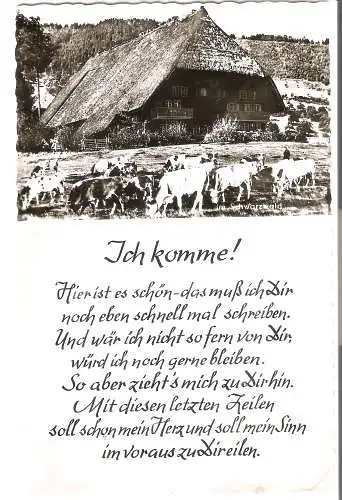 im Schwarzwald
Ich komme!
Hier ist es schön - das muß ich Dir
noch eben schnell mal schreiben.
Und wär ich nicht so fern von Dir,
würd ich noch gerne bleiben.
So aber zieht's mich zu Dir hin.
Mit diesen letzten Zeilen
soll schon mein Herz und soll mein Sinn
im voraus zu Dir eilen.